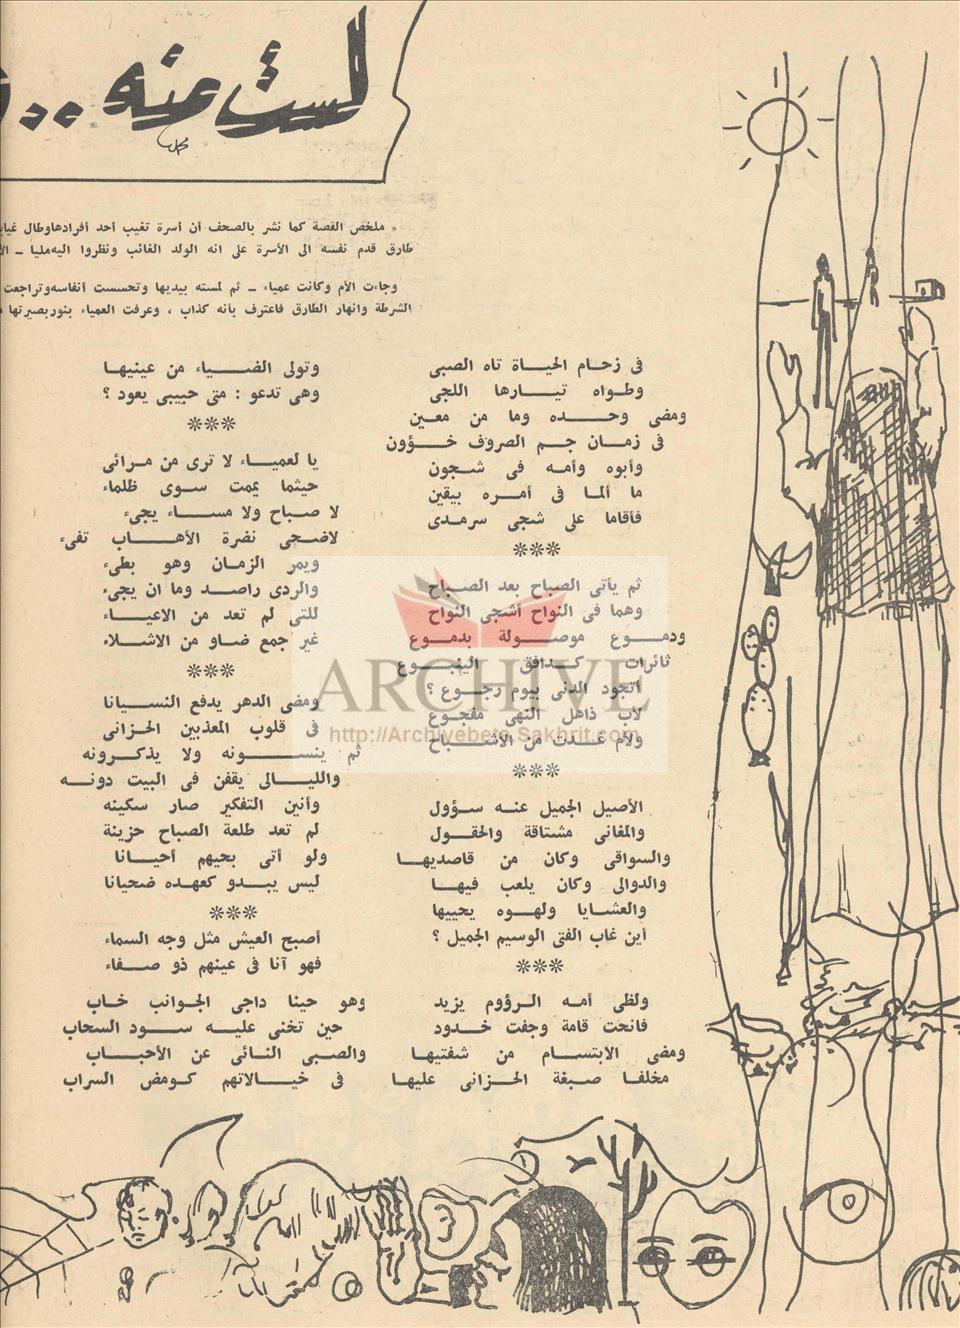 لست منه ..
« ملخص القصة كما نشر بالصحف أن أسرة تغيب أحد أفرادها وطال
طارق قدم نفسه الى الأسرة على انه الولد الغائب ونظروا اليه مليا ـ
وجاءت الأم وكانت عمياء ـ ثم لمسته بيديها وتحسست أنفاسه وتراجعت
الشرطة وانهار الطارق فاعترف بأنه كذاب ، وعرفت العمياء بنور بصيرتها
فى زحام الحياة تاه الصبى
وطواه تيارها اللجى
ومضى وحده وما من معين
فى زمان جم الصروف خؤون
وأبوه وأمه فى شجون
ما ألما فى أمره بيقين
فأقاما على شجى سرمدى
***
ثم يأتى الصباح بعد الصباح
وهما فى النواح أشجى النواح
ودموع موصولة بدموع
ثائرات كدافق الينبوع
أتجود الدنى بيوم رجوع ؟
لأب ذاهل النهى مفجوع
ولام عدت من الأشباح
***
الأصيل الجميل عنه سؤول
والمغانى مشتاقة والحقول
والسواقى وكان من قاصديها
والدوالى وكان يلعب فيها
والعشايا ولهوه يحييها
أين غاب الفتى الوسيم الجميل ؟
***
ولظى أمه الرؤوم يزيد
فانحت قامة وجفت خدود
ومضى الابتسام من شفتيها
مخلفا صبغة الحزانى عليها
وتولى الضياء من عينيها
وهى تدعو : متى حبيبى يعود ؟
***
يا لعمياء لا ترى من مرائى
حيثما يممت سوى ظلماء
لا صباح ولا مساء يجىء
لاضحى نضرة الأهاب تفىء
ويمر الزمان وهو بطىء
والردى راصد وما ان يجىء
للتى لم تعد من الاعياء
غير جمع ضاو من الاشلاء
***
ومضى الدهر يدفع النسيانا
فى قلوب المعذبين الحزانى
ثم ينسونه ولا يذكرونه
والليالى يقفن فى البيت دونه
وأنين التفكير صار سكينه
لم تعد طلعة الصباح حزينة
ولو أتى بحيهم أحيانا
ليس يبدو كعهده ضحيانا
***
أصبح العيش مثل وجه السماء
فهو آنا فى عينهم ذو صفاء
وهو حينا داجى الجوانب خاب
حين تخنى عليه سود السحاب
والصبى النائى عن الأحباب
فى خيالاتهم كومض السراب
ARCHIVE
http://Archivebeta.Sakhrit.com